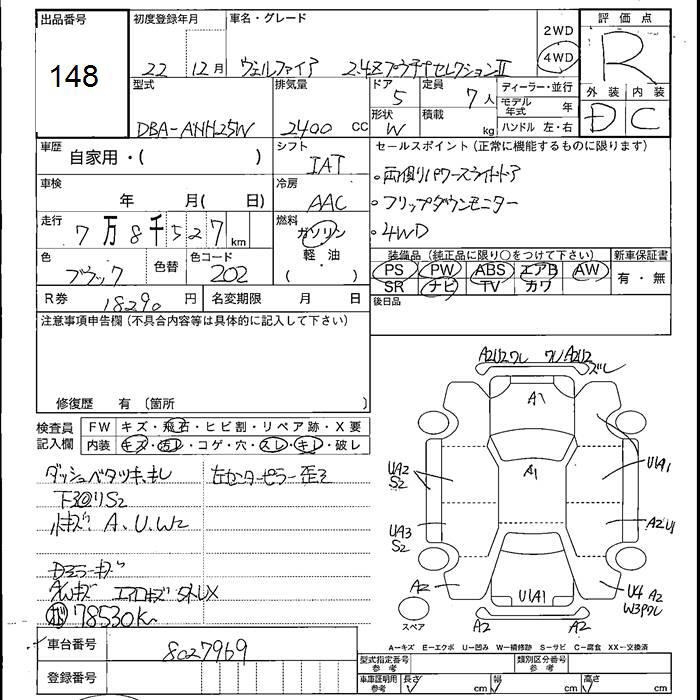 出品番号
148
初度登録年月
22 12月
車名・グレード
ヴェルファイア 2.4Z プラチナセレクションⅡ
2WD
4WD
評価点
R
外装 内装
D C
型式
DBA-ANH25W
排気量
2400 CC
ドア
5
形状
W
定員
7人
積載
kg
ディーラー・並行
モデル年式 年
ハンドル 左・右
車歴
自家用・( )
シフト
IAT
冷房
AAC
車検
年 月( 日)
走行
7万8千527km
燃料
ガソリン
軽油
( ・ )
色
ブラック
色替
色コード
202
R券
18290円
名変期限 月 日
セールスポイント (正常に機能するものに限ります)
・両側パワースライドドア
・フリップダウンモニター
・4WD
装備品 (純正品に限り○をつけて下さい)
PS PW ABS エアB AW
SR ナビ TV カワ
新車保証書
有・無
後日品
注意事項申告欄 (不具合内容等は具体的に記入して下さい)
修復歴 有 (箇所 )
検査員記入欄
FW キズ・飛石・ヒビ割・リペア跡・X要
内装 キズ・汚レ・コゲ・穴・スレ・キレ・破レ
ダッシュベタツキ、キレ
左センターピラー歪ミ
下回りS2
小キズ A、U、W2
Dミラーキズ
AWキズ エアロキズ
78530K
車台番号
8027969
登録番号
A2U2ワレ
ワレA2U2
ズレ
A1
A1
UA2
S2
UA3
S2
A2
U1A1
U1A1
A2U1
U4 A2
W3Pワレ
A2
A2
スペア
A―キズ E―エクボ U―凹み W―補修跡 S―サビ C―腐食 XX―交換済
型式指定番号 参考
類別区分番号 参考
車庫証明用 参考
長さ cm
幅 cm
高さ cm